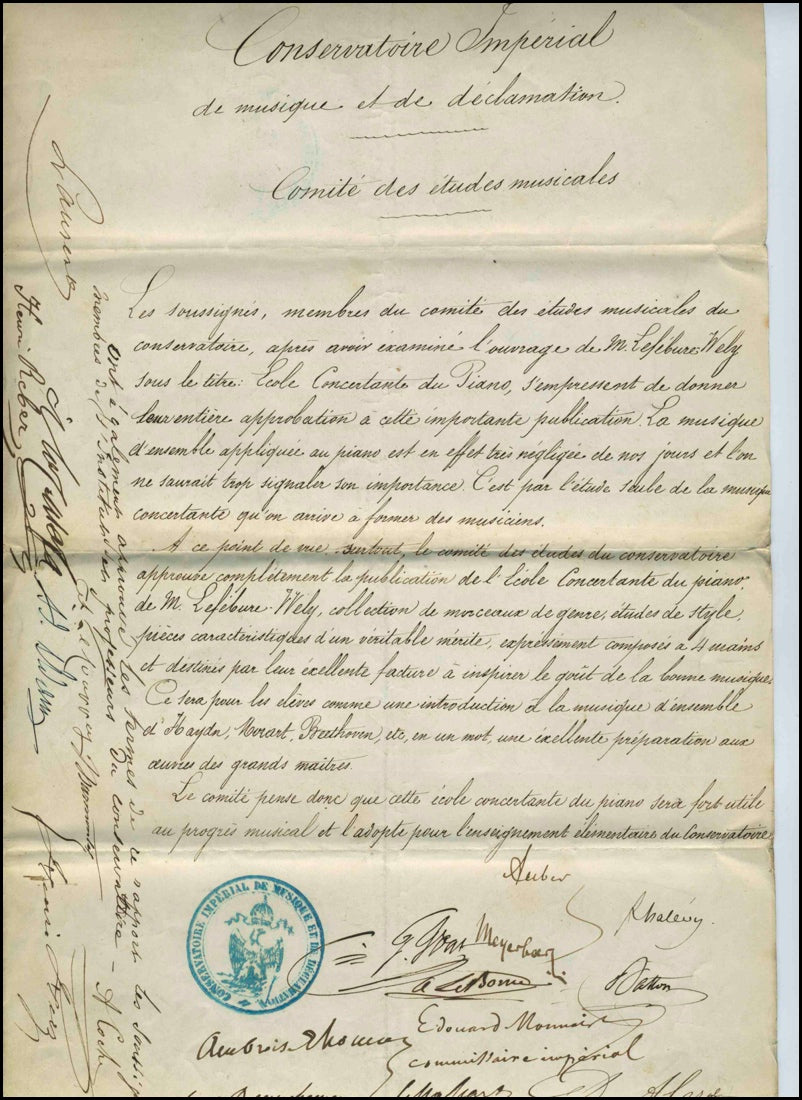 Conservatoire Impérial
de musique et de déclamation.
Comité des études musicales
Les soussignés, membres du comité des études musicales du
conservatoire, après avoir éxaminé l'ouvrage de M. Lefébure-Wely
sous le titre: École Concertante du Piano, s'empressent de donner
leur entière approbation à cette importante publication. La musique
d'ensemble appliquée au piano est en effet très négligée de nos jours et l'on
ne saurait trop signaler son importance. C'est par l'étude seule de la musique
concertante qu'on arrive à former des musiciens.
A ce point de vue surtout, le comité des études du conservatoire
approuve complètement la publication de l'École Concertante du piano,
de M. Lefébure-Wely, collection de morceaux de genre, études de style,
pièces caractéristiques d'un véritable mérite, expressément composés à 4 mains
et destinés par leur éxcellente facture à inspirer le goût de la bonne musique.
Ce sera pour les élèves comme une introduction à la musique d'ensemble
d'Haydn, Mozart, Beethoven, etc, en un mot, une éxcellente préparation aux
œuvres des grands maîtres.
Le comité pense donc que cette école concertante du piano sera fort utile
au progrès musical et l'adopte pour l'enseignement élémentaire du Conservatoire
Auber
F. Halévy
Meyerbeer
Batton
Edouard Monnais
commissaire impérial
Ambroise Thomas
CONSERVATOIRE IMPÉRIAL DE MUSIQUE ET DE DÉCLAMATION
ont également approuvé les termes de ce rapport les soussignés
membres de l'Institut et professeurs du conservatoire –
A Coche
Laurent
Henri Reber
A. Adam
Marmontel
Henri Herz